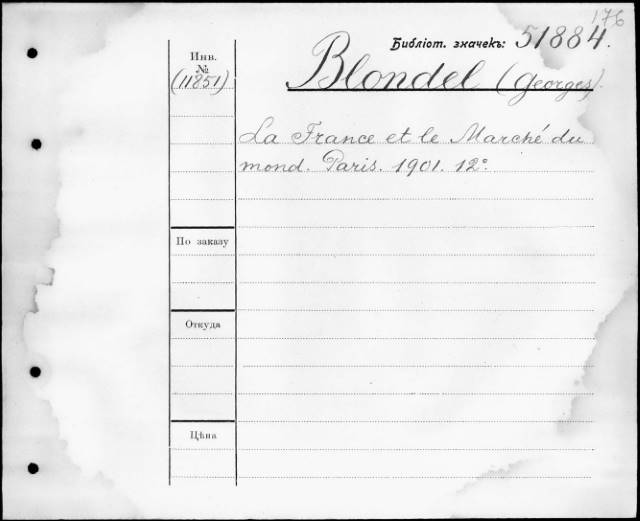 176
Библіот. значекъ: 51884.
Инв.
№
(11851)
Blondel (Georges).
La France et le Marché du
mond. Paris. 1901. 12º
По заказу
Откуда
Цѣна